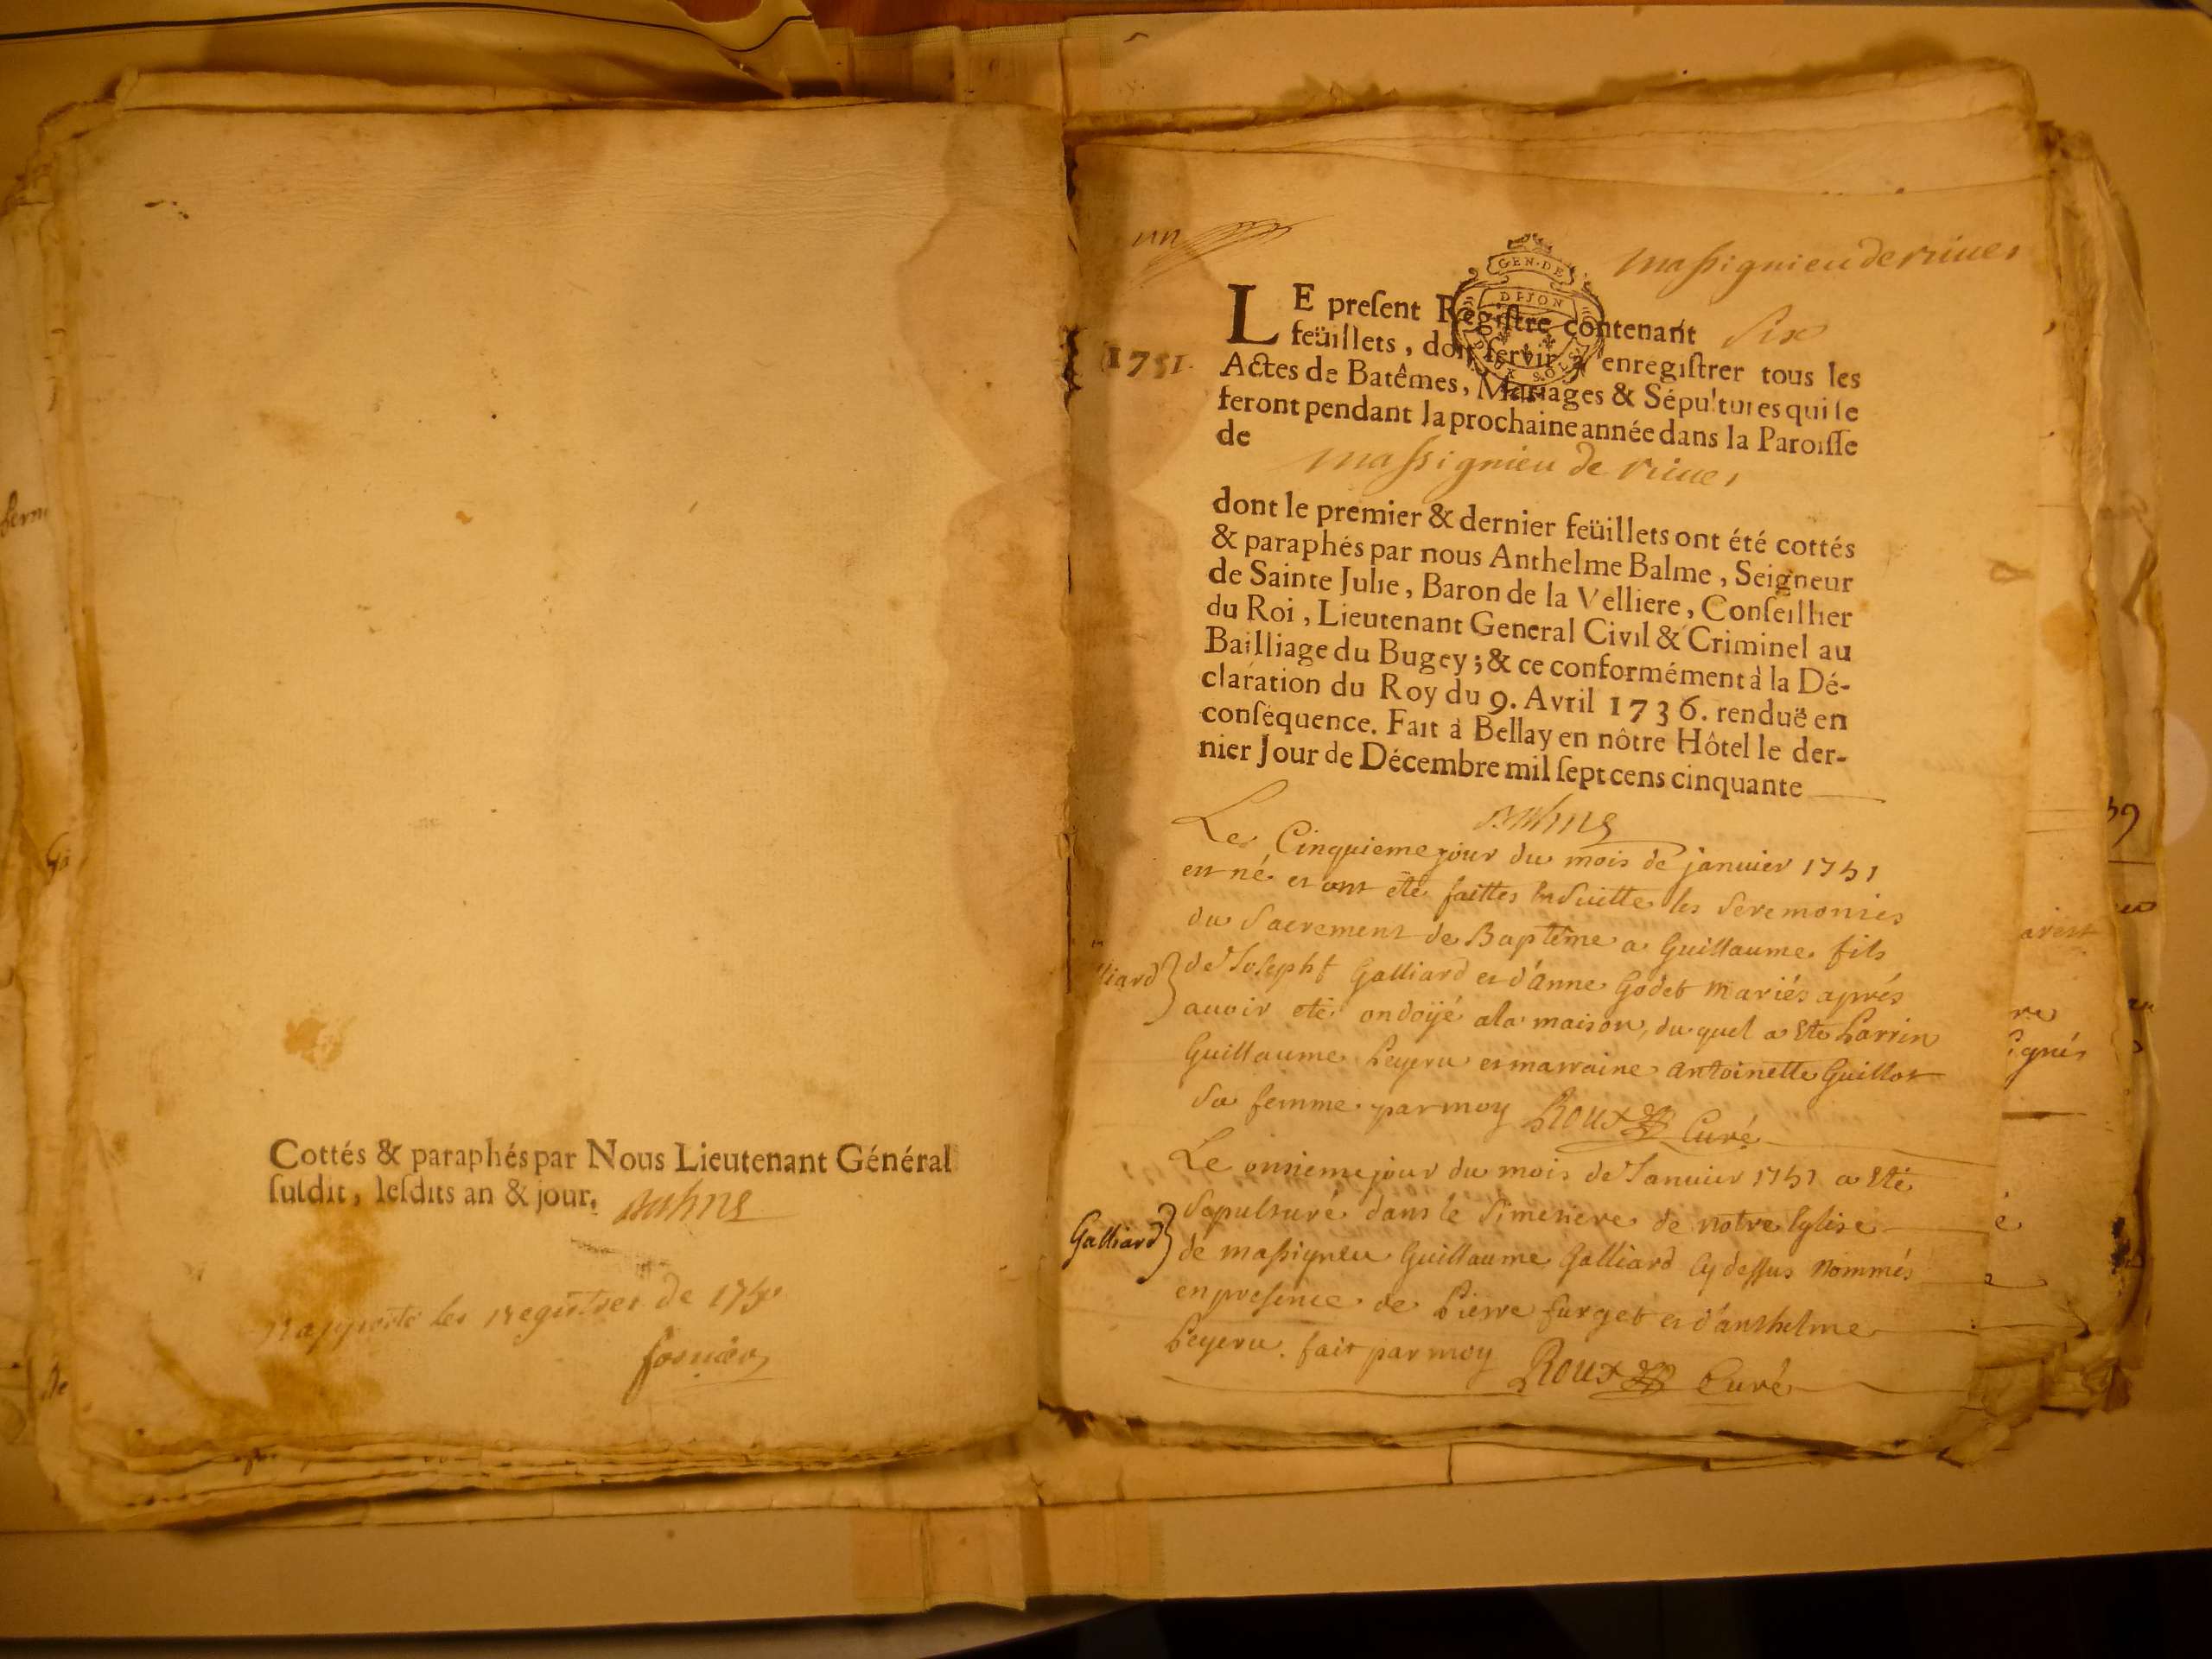 Cottés & paraphés par Nous Lieutenant Général
suſdit, leſdits an & jour. Balme
Rapporté les Registres de 1750
un
maſsignieu de rives
GEN. DE
DIJON
DEUX SOLS
1751.
LE preſent Regiſtre contenant Six
feüillets, doit ſervir à enregiſtrer tous les
Actes de Batêmes, Mariages & Sépultures qui ſe
feront pendant la prochaine année dans la Paroiſſe
de maſsignieu de rives
dont le premier & dernier feüillets ont été cottés
& paraphés par nous Anthelme Balme, Seigneur
de Sainte Julie, Baron de la Velliere, Conſeilher
du Roi, Lieutenant General Civil & Criminel au
Bailliage du Bugey; & ce conformément à la Dé-
claration du Roy du 9. Avril 1736. renduë en
conſéquence. Fait à Bellay en nôtre Hôtel le der-
nier Jour de Décembre mil ſept cens cinquante
Balme
Le Cinquieme jour du mois de janvier 1751
est né et ont été faittes les Seremonies
du Sacrement de Baptême a Guillaume fils
lliard
de Joseph Galliard et d'Anne Godet mariés aprés
avoir eté ondoÿé a la maison, du quel a Eté Parrin
Guillaume Peyeru et marraine Antoinette Guillot
Sa femme par moy Roux Curé
Le onzieme jour du mois de Janvier 1751 a Eté
Sepulturé dans le Simetiere de notre Eglise
Galliard
de maſsigneu Guillaume Galliard Cy deſſus Nommés
en preſence de Pierre furget et d'anthelme
Peyeru. fait par moy Roux Curé